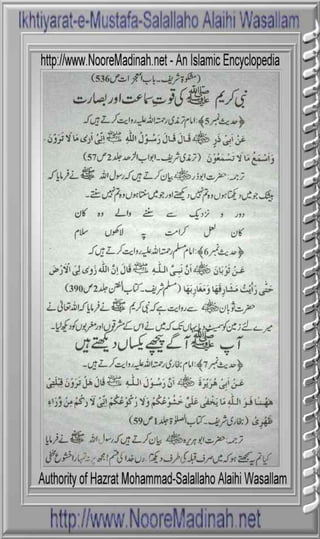 Ikhtiyarat-e-Mustafa-Salallaho Alaihi Wasallam
http://www.NooreMadinah.net - An Islamic Encyclopedia
(مشکوٰۃ شریف۔ باب المعجزات ص536)
نبی کریم ﷺ کی قوتِ سماعت اور بصارت
﴿حدیث نمبر5﴾: امام ترمذی رحمۃ اللہ علیہ روایت کرتے ہیں کہ
عَنْ اَبِیْ ذَرٍّ قَالَ قَالَ رَسُوْلُ اللّٰہِ ﷺ اِنِّیْ اَرٰی مَا لَا تَرَوْنَ
وَاَسْمَعُ مَا لَا تَسْمَعُوْنَ (ترمذی شریف۔ ابواب الزھد جلد2 ص57)
ترجمہ: حضرت ابوذر بیان کرتے ہیں کہ رسول اللہ ﷺ نے فرمایا کہ
بیشک جو میں دیکھتا ہوں وہ تم نہیں دیکھتے اور جو میں سنتا ہوں وہ تم نہیں سنتے۔
دور و نزدیک سے سننے والے وہ کان
کان لعل کرامت پہ لاکھوں سلام
﴿حدیث نمبر6﴾: امام مسلم رحمۃ اللہ علیہ روایت کرتے ہیں کہ
عَنْ ثَوْبَانَ اَنَّ نَبِیَّ اللّٰہِ ﷺ قَالَ اِنَّ اللّٰہَ زَوٰی لِیَ الْاَرْضَ
حَتّٰی رَاَیْتُ مَشَارِقَھَا وَمَغَارِبَھَا (مسلم شریف۔ کتاب الفتن جلد2 ص390)
حضرت ثوبان سے روایت ہے کہ نبی کریم ﷺ نے فرمایا کہ اللہ تعالیٰ نے
میرے لئے زمین کو سمیٹ دیا یہاں تک کہ میں نے اس کے مشرقوں اور مغربوں کو دیکھ لیا۔
آپ ﷺ آگے پیچھے یکساں دیکھتے ہیں
﴿حدیث نمبر7﴾: امام بخاری رحمۃ اللہ علیہ روایت کرتے ہیں۔
عَنْ اَبِیْ ھُرَیْرَۃَ اَنَّ رَسُوْلَ اللّٰہِ ﷺ قَالَ ھَلْ تَرَوْنَ قِبْلَتِیْ
ھٰھُنَا فَوَ اللّٰہِ مَا یَخْفٰی عَلَیَّ خُشُوْعُکُمْ وَلَا رُکُوْعُکُمْ اِنِّیْ لَاَرٰکُمْ مِنْ وَّرَاءِ
ظَھْرِیْ (بخاری شریف۔ کتاب الصلوٰۃ جلد1 ص59)
ترجمہ: حضرت ابوہریرہ بیان کرتے ہیں کہ رسول اللہ ﷺ نے فرمایا
کیا تم یہ سمجھتے ہو کہ میں صرف قبلہ کی طرف دیکھتا ہوں خدا کی قسم! مجھ پر نہ تمہارا خشوع مخفی
Authority of Hazrat Mohammad-Salallaho Alaihi Wasallam
http://www.NooreMadinah.net